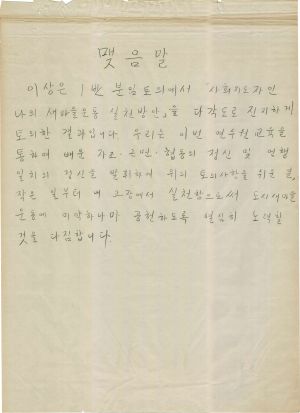 맺음말
이상은 1반 분임토의에서 「사회지도자인
나의 새마을운동 실천방안」을 다각도로 진지하게
토의한 결과입니다. 우리는 이번 연수원교육을
통하여 배운 자조·근면·협동의 정신 및 언행
일치의 정신을 발휘하여 위의 토의사항을 위주로,
작은 일부터 내 고장에서 실천함으로써 도시새마을
운동에 미약하나마 공헌하도록 열심히 노력할
것을 다짐합니다.